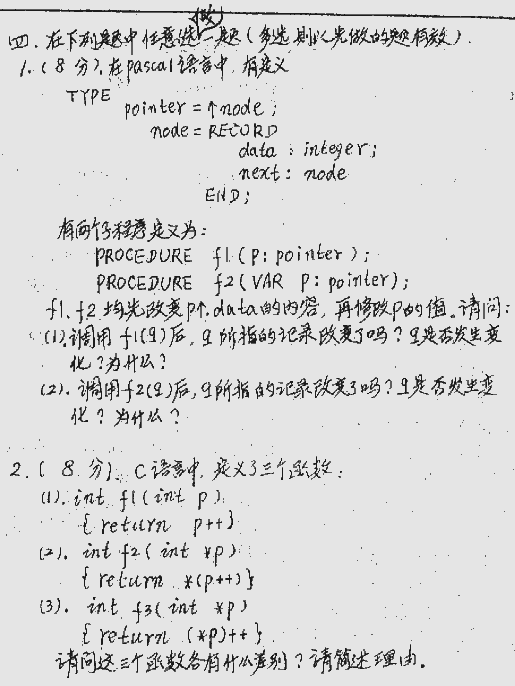 四. 在下列题中任意选做一题(多选则以先做的题有效).
1. (8分). 在pascal语言中, 有定义
TYPE
pointer = ↑node;
node = RECORD
data : integer;
next : node
END;
有两个子程序定义为:
PROCEDURE f1(P: pointer);
PROCEDURE f2(VAR P: pointer);
f1, f2 均先改变p↑.data的内容, 再修改P的值. 请问:
(1). 调用f1(q)后, q所指的记录改变了吗? q是否发生变
化? 为什么?
(2). 调用f2(q)后, q所指的记录改变了吗? q是否发生变
化? 为什么?
2. (8分). C语言中, 定义了三个函数:
(1). int f1(int p)
{return p++}
(2). int f2(int *p)
{return *(p++)}
(3). int f3(int *p)
{return (*p)++}
请问这三个函数各有什么差别? 请简述理由.